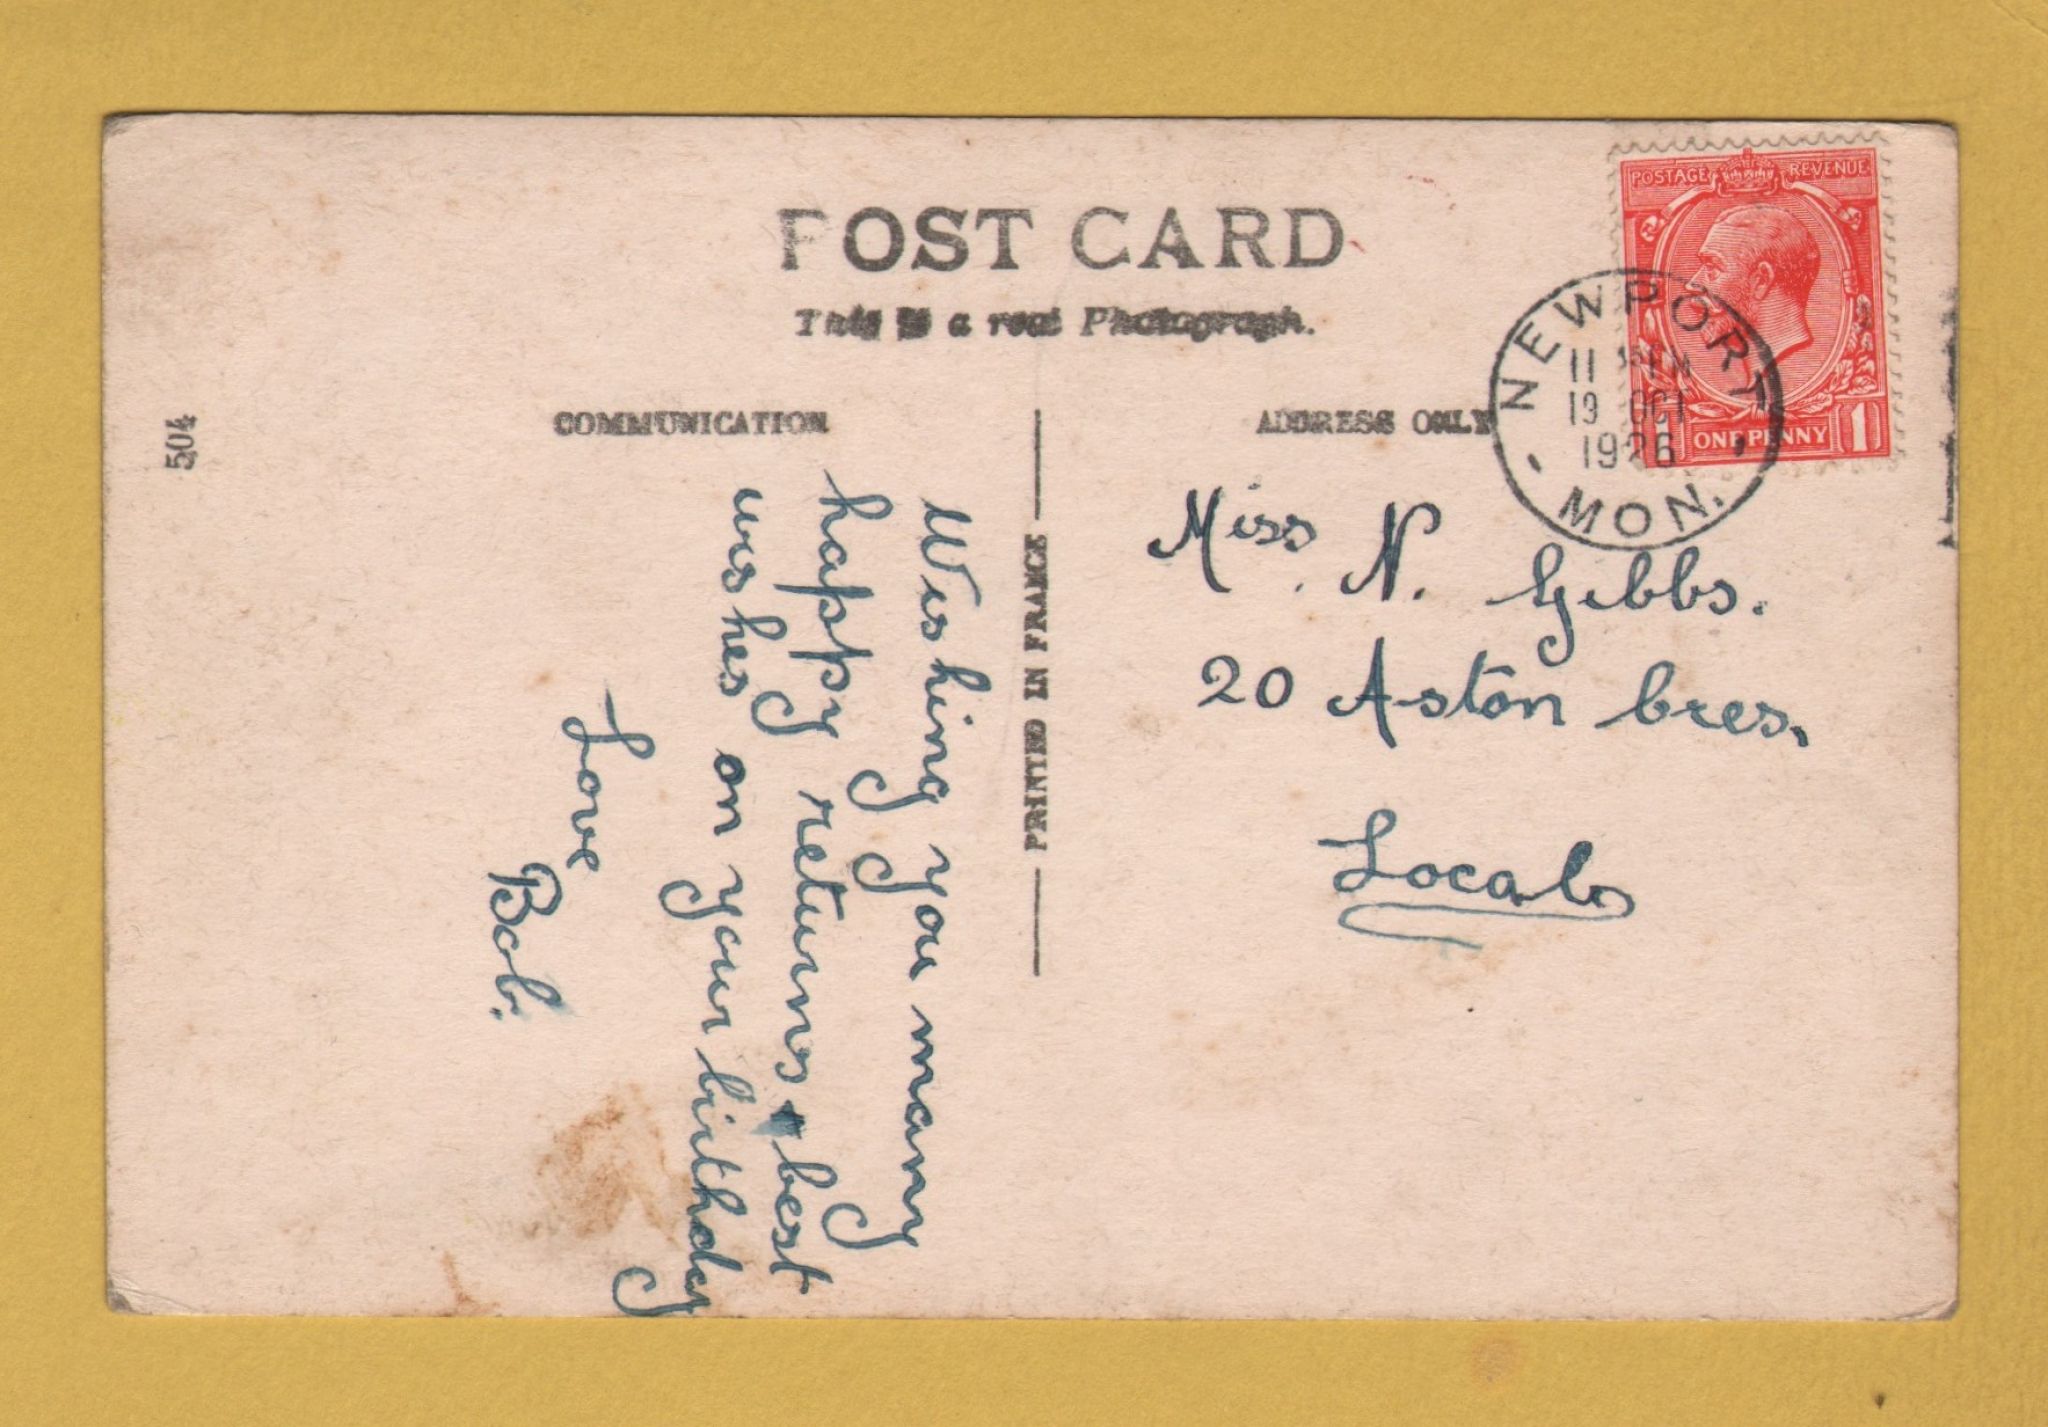 POST CARD
This is a real Photograph.
504
COMMUNICATION
ADDRESS ONLY
PRINTED IN FRANCE
POSTAGE REVENUE
ONE PENNY 1
NEWPORT
11
19 OCT
1926
MON.
Wishing you many
happy returns & best
wishes on your birthday
Love
Bob.
Miss. N. Gibbs.
20 Aston Cres.
Local